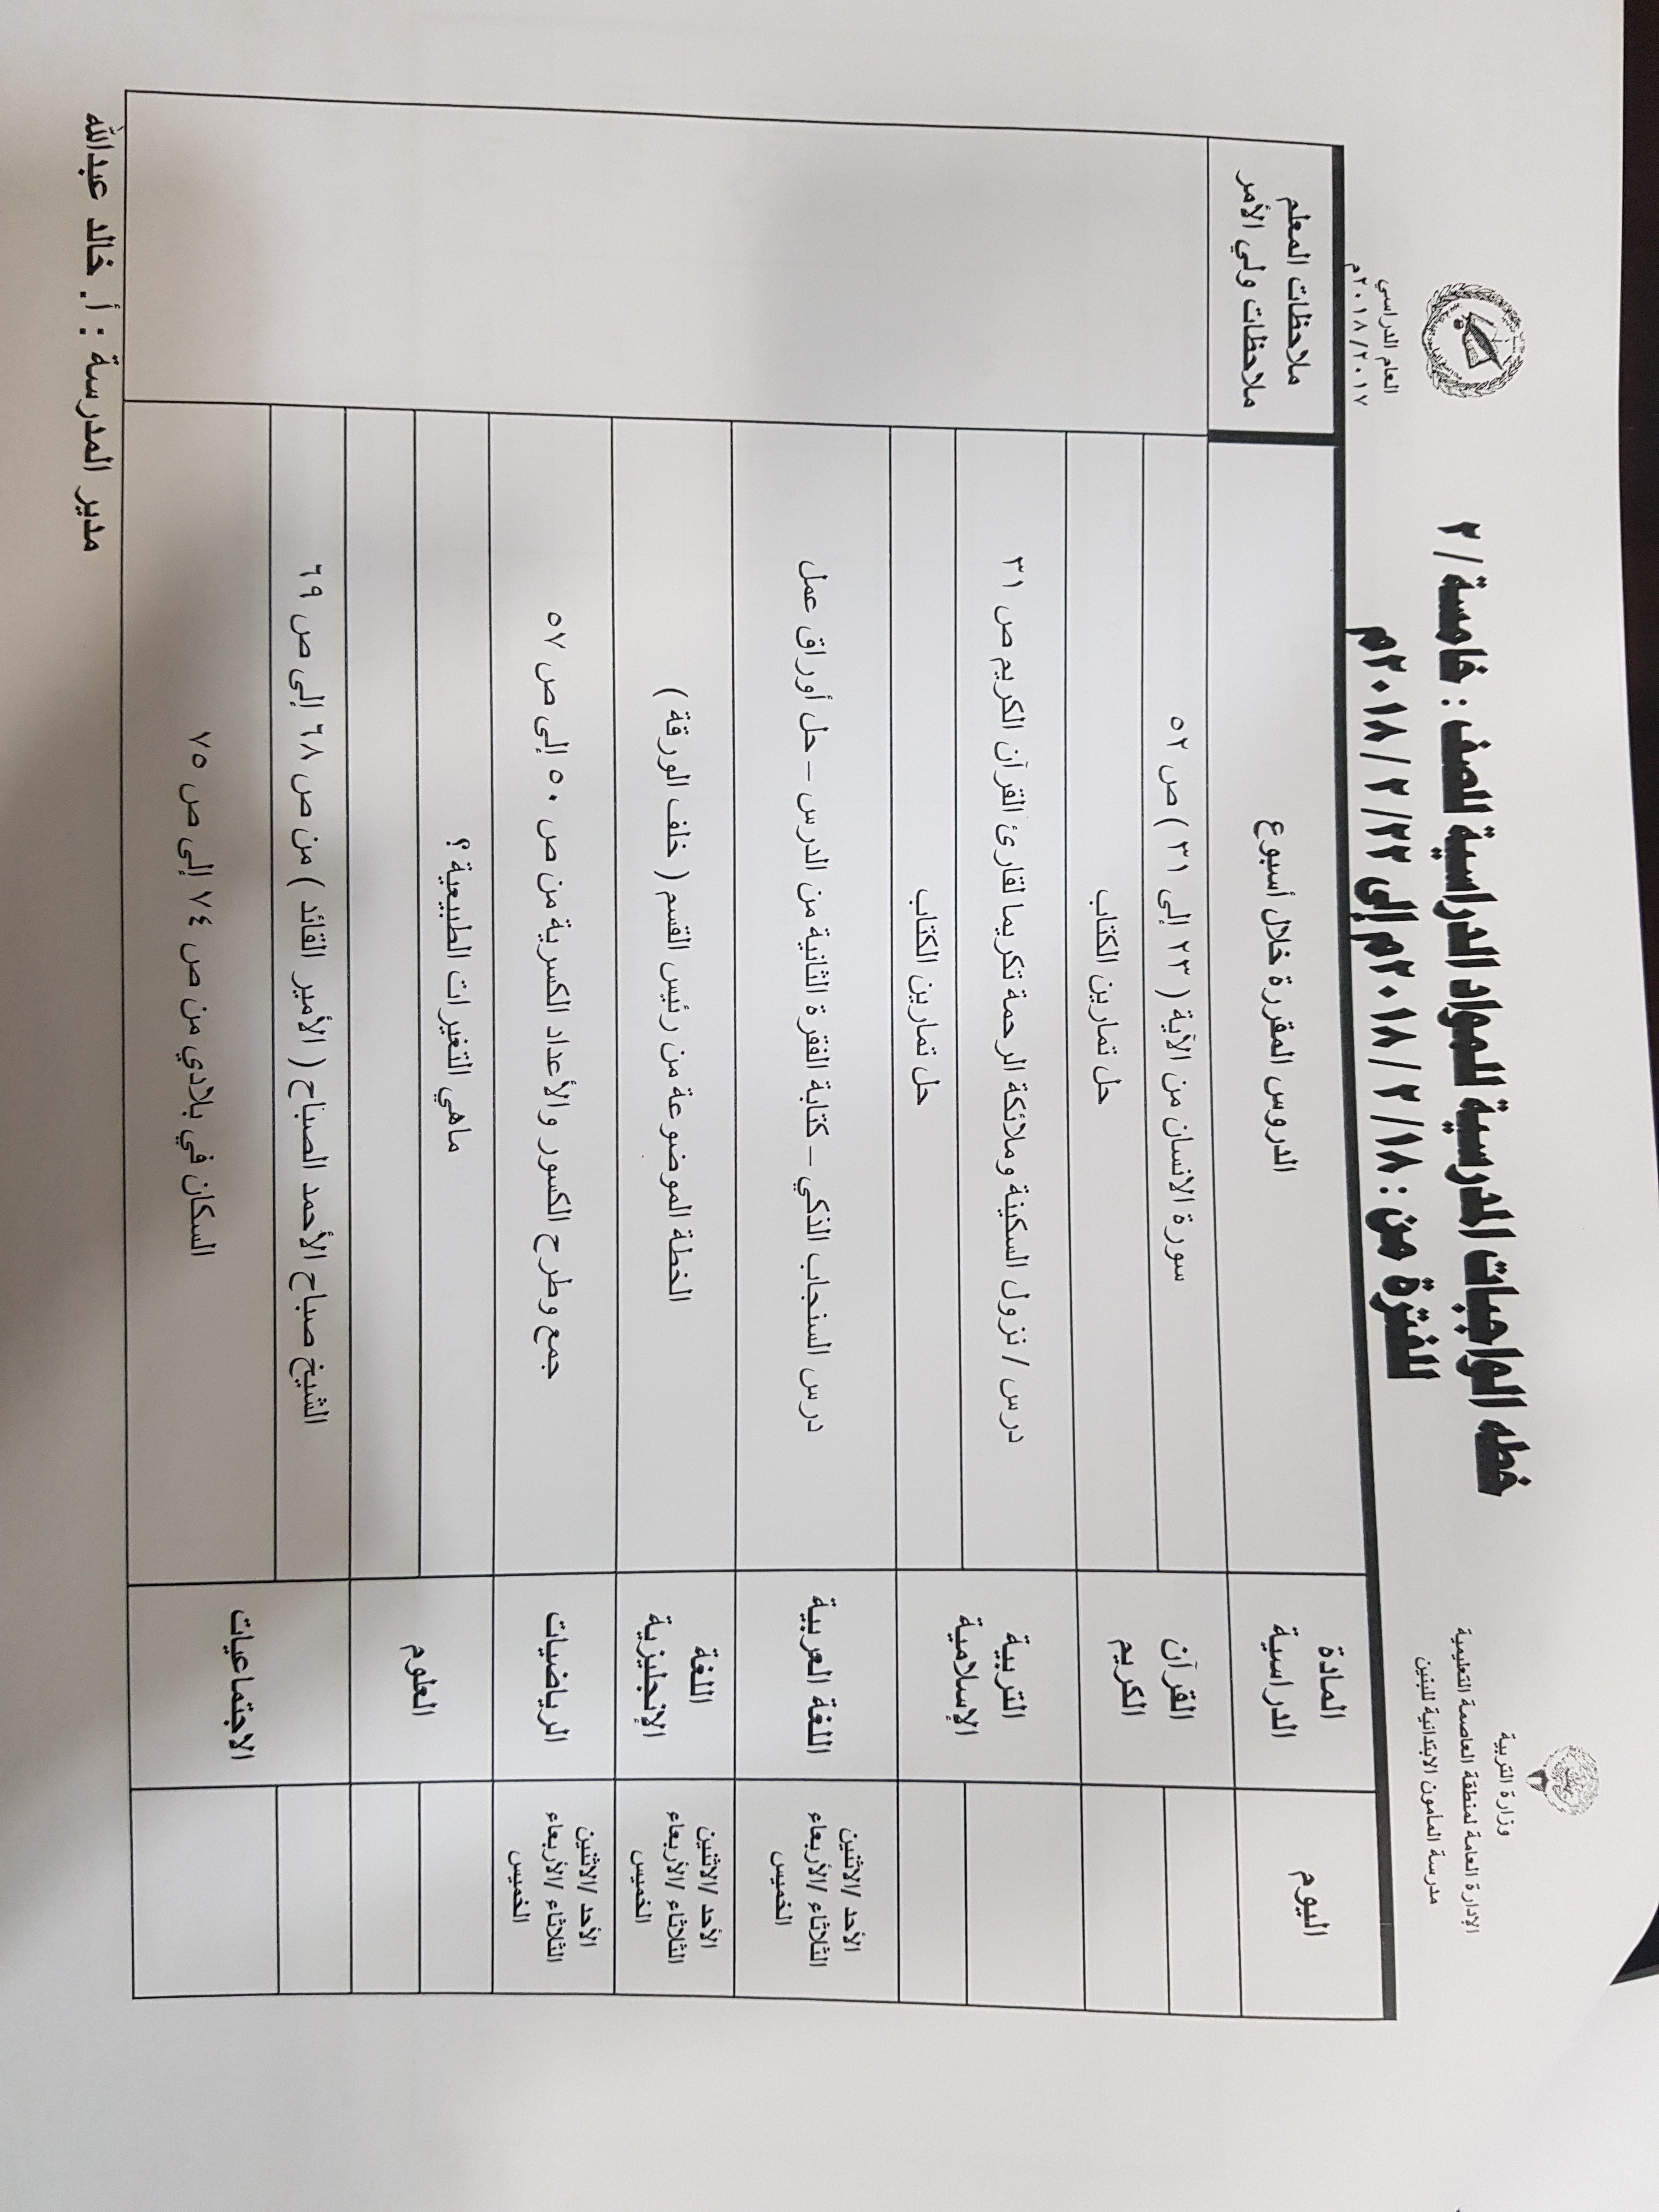 وزارة التربية
الإدارة العامة لمنطقة العاصمة التعليمية
مدرسة المأمون الابتدائية للبنين
خطه الواجبات المدرسية للمواد الدراسية للصف : خامسة / ٢
للفترة من : ١٨ / ٢ / ٢٠١٨م إلى ٢٢ / ٢ / ٢٠١٨م
العام الدراسي
٢٠١٨/٢٠١٧م
اليوم
المادة
الدراسية
الدروس المقررة خلال أسبوع
ملاحظات المعلم
ملاحظات ولي الأمر
القرآن
الكريم
سورة الانسان من الآية ( ٢٣ إلى ٣١ ) ص ٥٢
حل تمارين الكتاب
التربية
الإسلامية
درس / نزول السكينة وملائكة الرحمة تكريما لقارئ القرآن الكريم ص ٣١
حل تمارين الكتاب
الأحد /الاثنين
الثلاثاء /الأربعاء
الخميس
اللغة العربية
درس السنجاب الذكي – كتابة الفقرة الثانية من الدرس – حل أوراق عمل
الأحد /الاثنين
الثلاثاء /الأربعاء
الخميس
اللغة
الإنجليزية
الخطة الموضوعة من رئيس القسم ( خلف الورقة )
الأحد /الاثنين
الثلاثاء /الأربعاء
الخميس
الرياضيات
جمع وطرح الكسور والأعداد الكسرية من ص ٥٠ إلى ص ٥٧
العلوم
ماهي التغيرات الطبيعية ؟
الاجتماعيات
الشيخ صباح الأحمد الصباح ( الأمير القائد ) من ص ٦٨ إلى ص ٦٩
السكان في بلادي من ص ٧٤ إلى ص ٧٥
مدير المدرسة : أ. خالد عبدالله